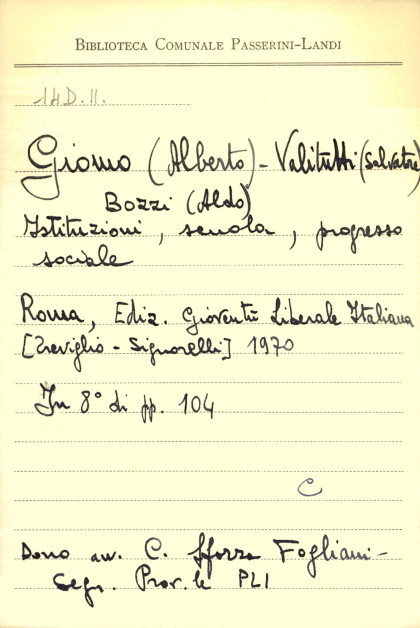 BIBLIOTECA COMUNALE PASSERINI-LANDI
14D.II.
Giomo (Alberto) - Valitutti (Salvatore)
Bozzi (Aldo)
Istituzioni, scuola, progresso
sociale
Roma, Ediz. Gioventù Liberale Italiana
[Treviglio - Signorelli] 1970
In 8° di pp. 104
C
Dono avv. C. Sforza Fogliani -
Segr. Prov.le PLI